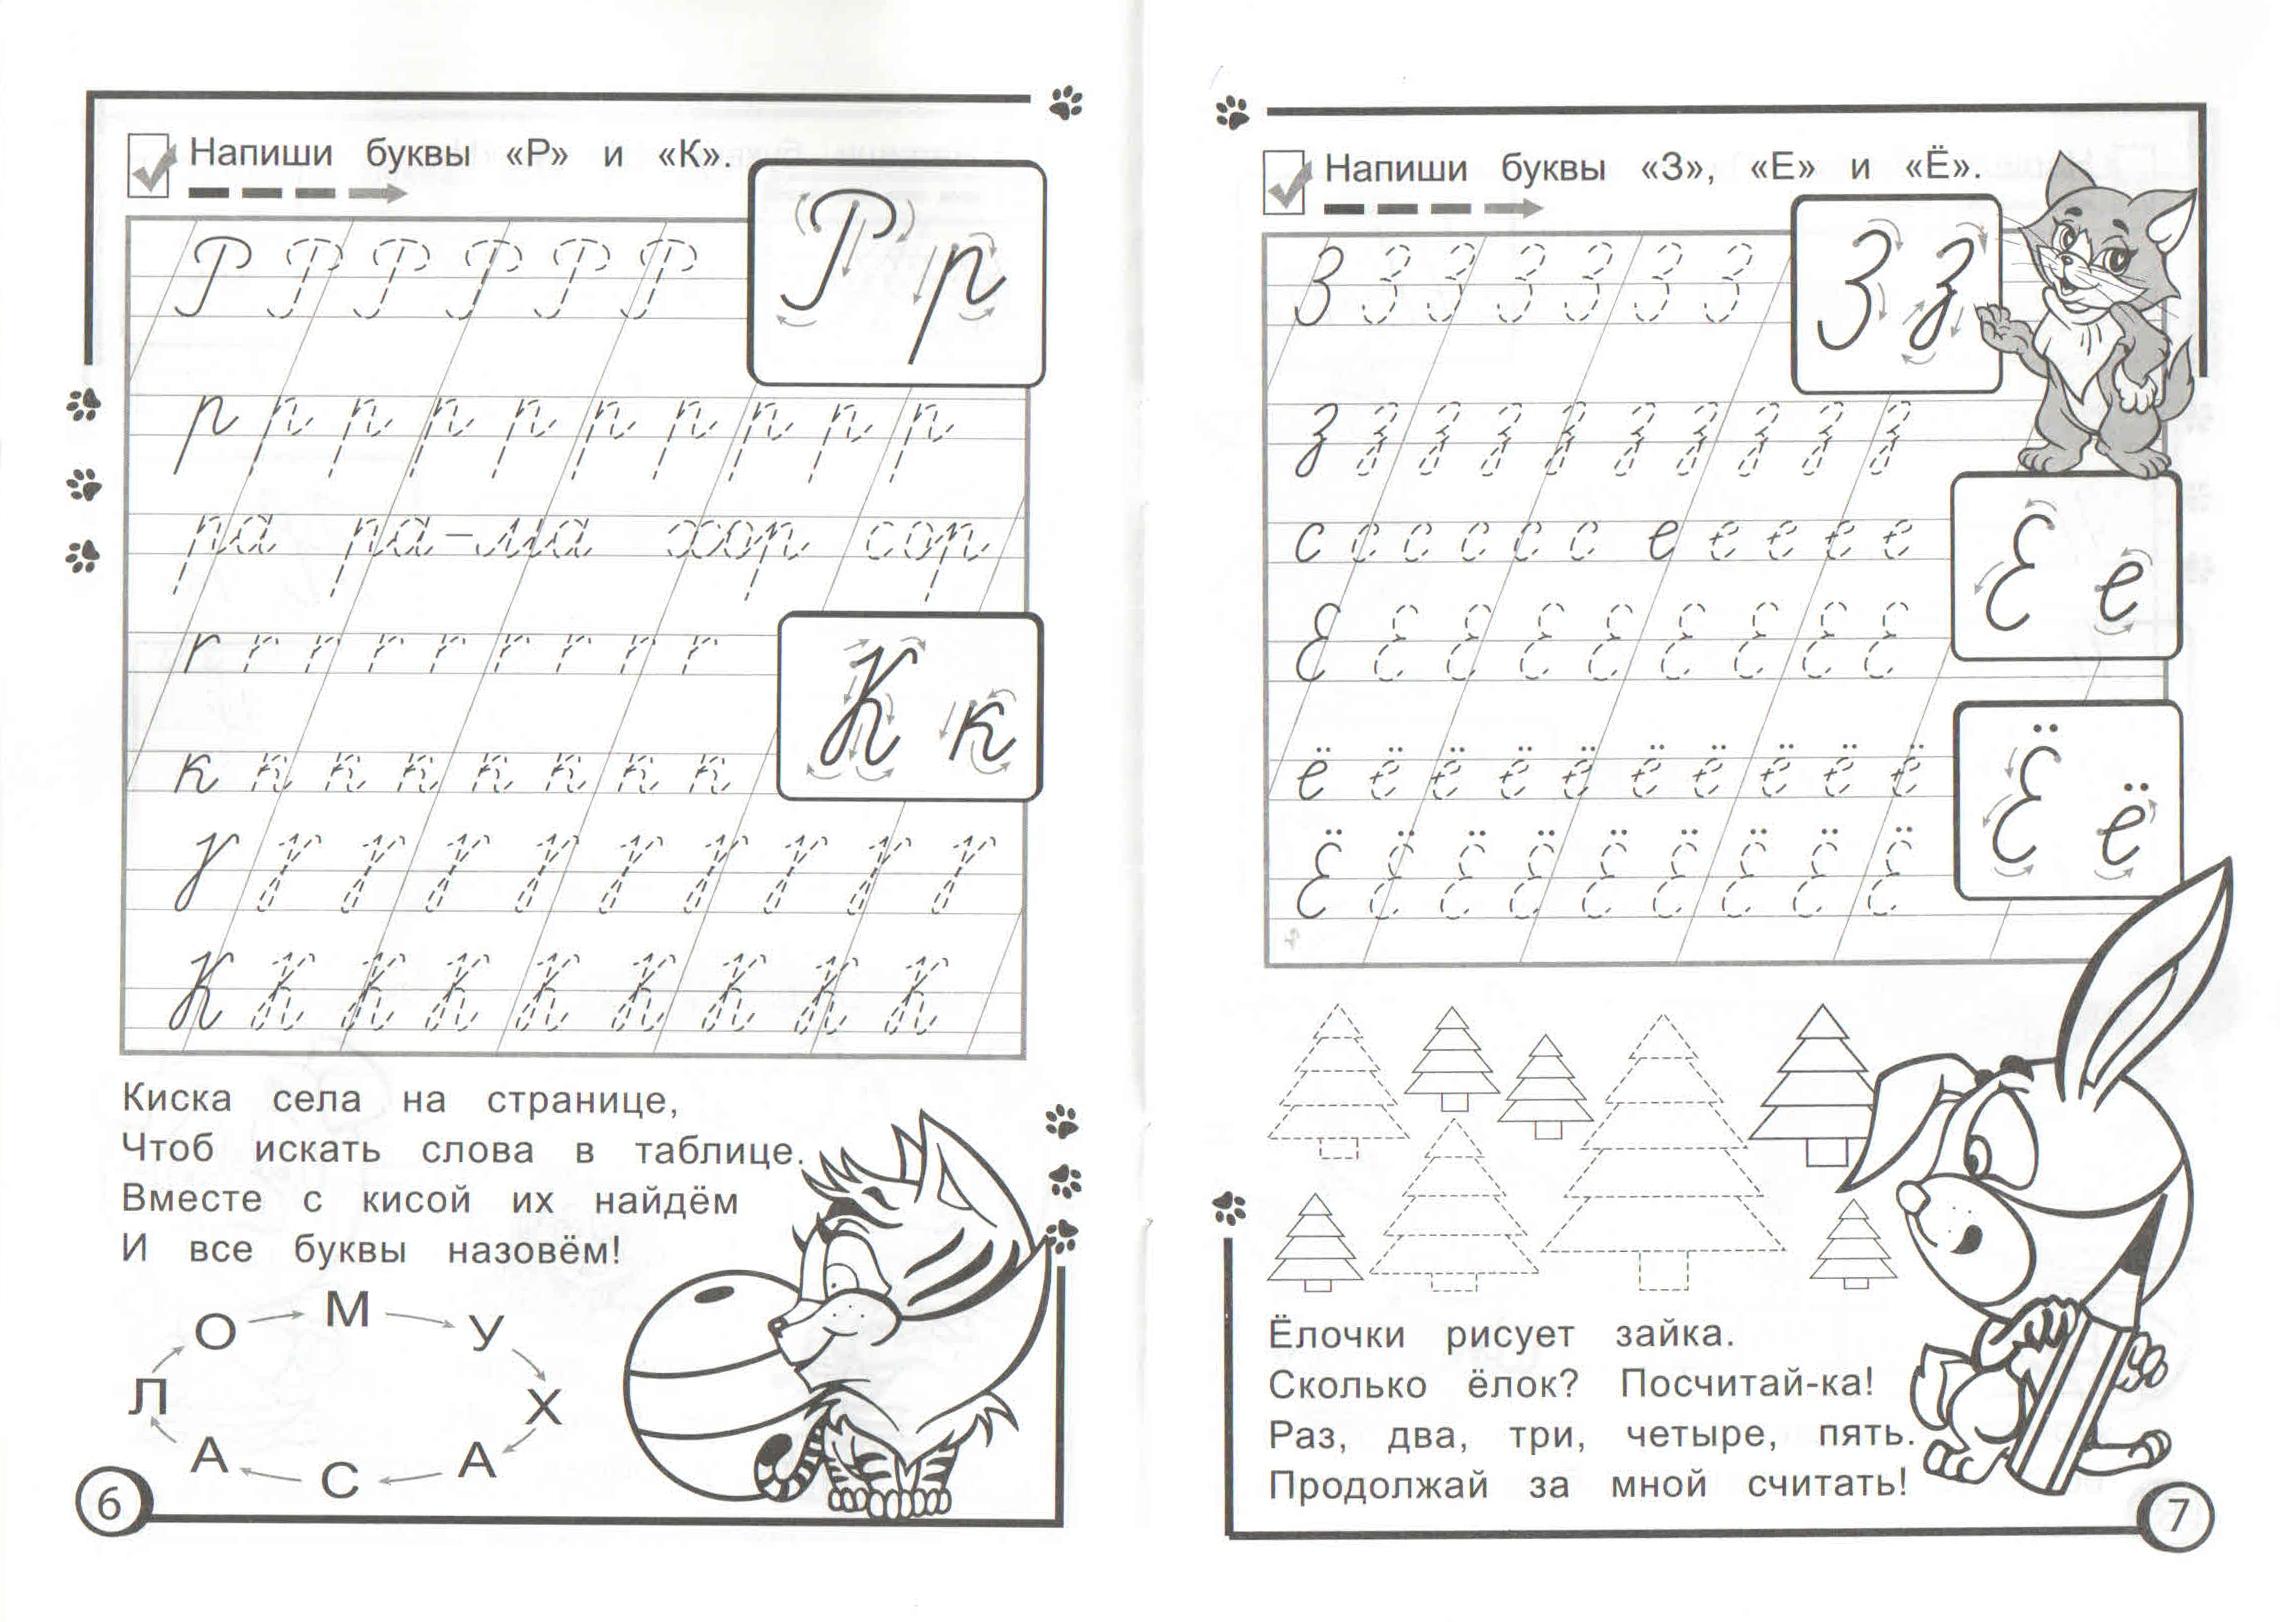 Напиши буквы «Р» и «К».
Р Р Р Р Р Р
Р р
р р р р р р р р р р
ра ра-ма хор сор
г г г г г г г г г
К к
к к к к к к к к
К К К К К К К К К
Киска села на странице,
Чтоб искать слова в таблице.
Вместе с кисой их найдём
И все буквы назовём!
О М У
Л Х
А С А
6
Напиши буквы «З», «Е» и «Ё».
З З З З З З З
З з
з з з з з з з з з з
с с с с с с е е е е е
Е е
Е Е Е Е Е Е Е Е Е
ё ё ё ё ё ё ё ё ё ё
Ё ё
Ё Ё Ё Ё Ё Ё Ё Ё Ё
Ёлочки рисует зайка.
Сколько ёлок? Посчитай-ка!
Раз, два, три, четыре, пять.
Продолжай за мной считать!
7